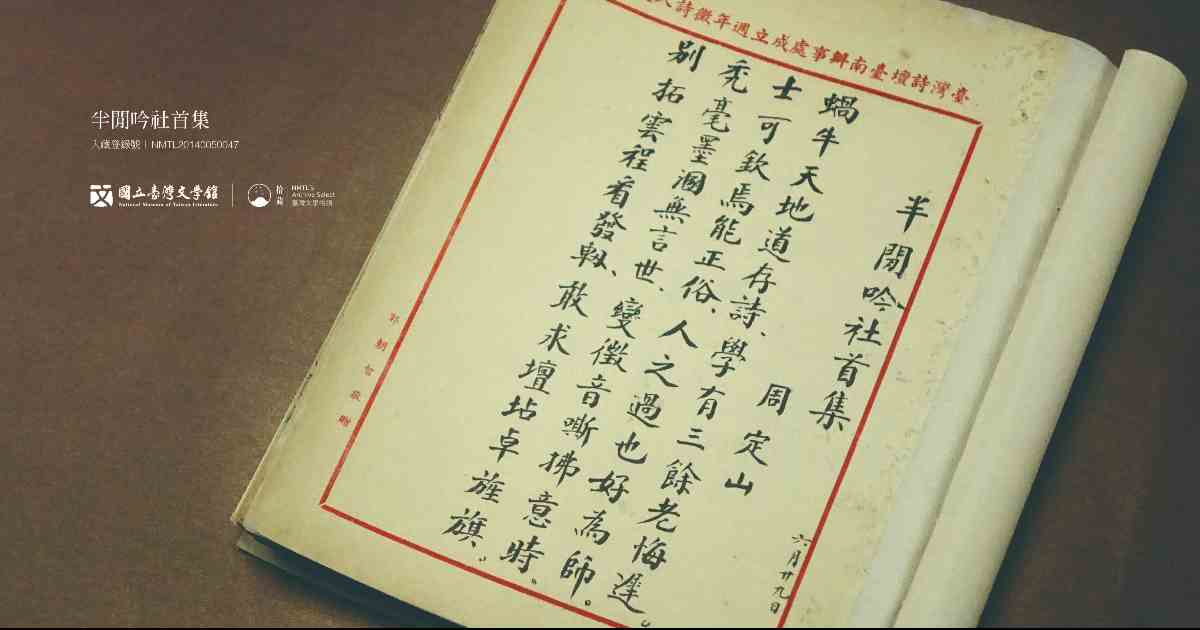 半閒吟社首集
入藏登錄號｜NMTL20140050047
國立臺灣文學館
National Museum of Taiwan Literature
拾藏
NMTL's
Archive Select
臺灣文學物語
臺灣詩壇臺南辦事處成立週年徵詩
半閒吟社首集
周定山
六月廿九日
蝸牛天地道存詩、學有三餘老悔遲。
士可欽焉能正俗、人之過也好為師。
禿毫墨涸無言世、變徵音嘶拂意時。
別拓雲程看發軔、敢求壇坫卓旌旗。
敬贈